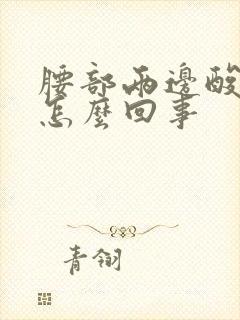 腰部兩邊酸
怎麼回事
青翎